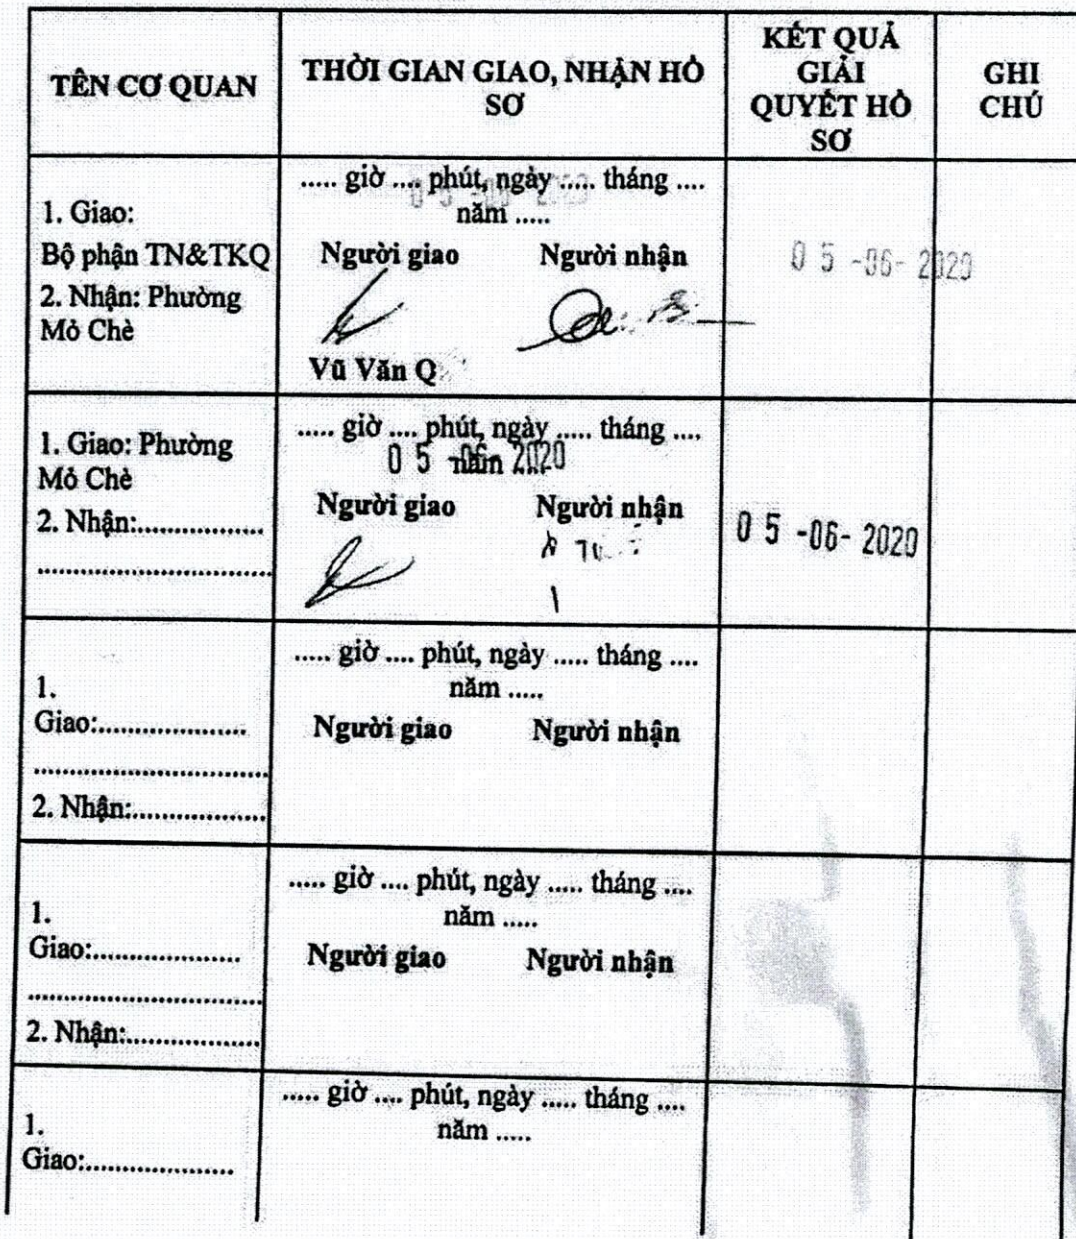 TÊN CƠ QUAN
THỜI GIAN GIAO, NHẬN HỒ
SƠ
KẾT QUẢ
GIẢI
QUYẾT HỒ
SƠ
GHI
CHÚ
1. Giao:
Bộ phận TN&TKQ
2. Nhận: Phường
Mỏ Chè
..... giờ .... phút, ngày ..... tháng ....
năm .....
Người giao Người nhận
Vũ Văn Q
0 5 -06- 2020
1. Giao: Phường
Mỏ Chè
2. Nhận:..................
.................................
..... giờ .... phút, ngày ..... tháng ....
0 5 -06- 2020
năm
Người giao Người nhận
0 5 -06- 2020
1.
Giao:.....................
.................................
2. Nhận:...................
..... giờ .... phút, ngày ..... tháng ....
năm .....
Người giao Người nhận
1.
Giao:.....................
.................................
2. Nhận:...................
..... giờ .... phút, ngày ..... tháng ....
năm .....
Người giao Người nhận
1.
Giao:.....................
..... giờ .... phút, ngày ..... tháng ....
năm .....